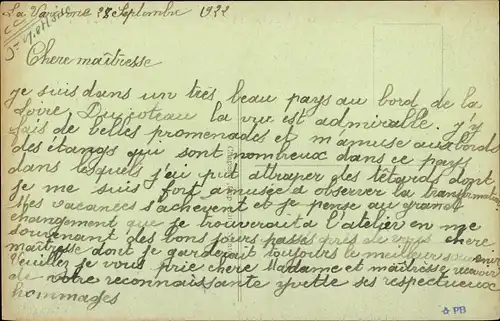 La 28 Septembre 1922
Chere maîtresse
je suis dans un très beau pays au bord de la
Loire, la vue est admirable. j'y
fais de belles promenades et m'amuse aux bords
des étangs qui sont nombreux dans ce pays
dans lesquels j'ai put attraper des têtards dont
je me suis fort amusée a observer la transformation
Mes vacances s'achevent et je pense au grand
changement que je trouverait a l'atelier en me
souvenant des bons jours passés près de vous chere
maîtresse dont je garderait toujours le meilleur souvenir
Veuillez je vous prie chere Madame et maîtresse recevoir
de votre reconnaissante yvette ses respectueux
hommages
PB